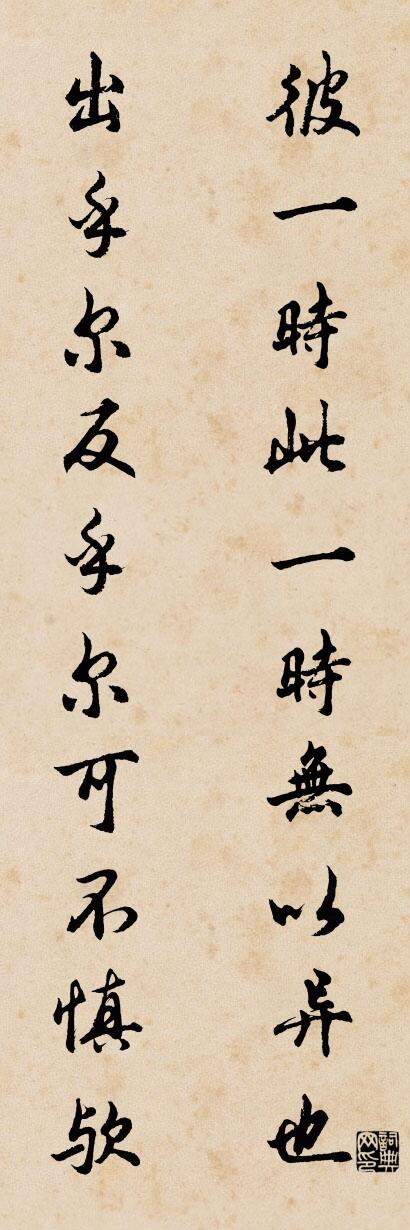 彼一時此一時無以异也
出乎尔反乎尔可不慎欤
詞典网印